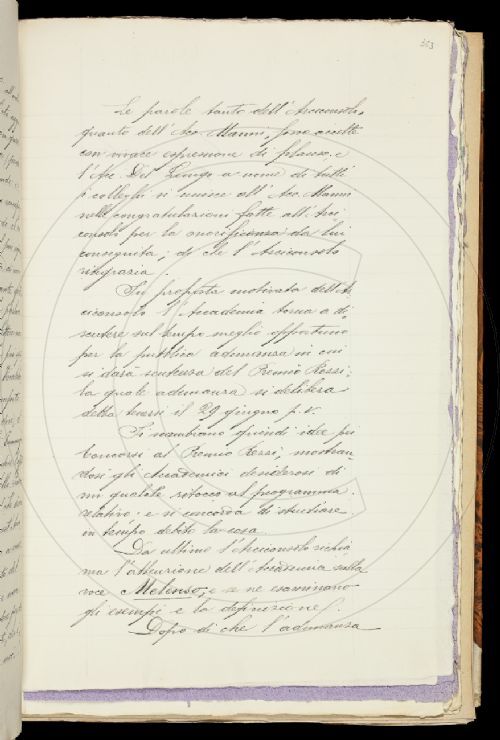 353
Le parole tanto dell'Arciconsolo,
quanto dell'Acc. Manni, sono accolte
con vivace espressione di plauso, e
l'Acc. Del Lungo a nome di tutti
i colleghi si unisce all'Acc. Manni
nelle congratulazioni fatte all'Arci
consolo per la onorificenza da lui
conseguita; di che l'Arciconsolo
ringrazia.
Su proposta motivata dell'Ar
ciconsolo l'Accademia torna a di
scutere sul tempo meglio opportuno
per la pubblica adunanza in cui
si darà sentenza del Premio Rezzi;
la quale adunanza si delibera
debba tenersi il 29 giugno p. v.
Si scambiano quindi idee pei
Concorsi al Premio Rezzi, mostran
dosi gli Accademici desiderosi di
un qualche ritocco al programma
relativo. e si concorda di studiare
in tempo debito la cosa.
Da ultimo l'Arciconsolo richia
ma l'attenzione dell'Accademia sulla
voce Melenso, e se ne esaminano
gli esempi e la definizione.
Dopo di che l'adunanza